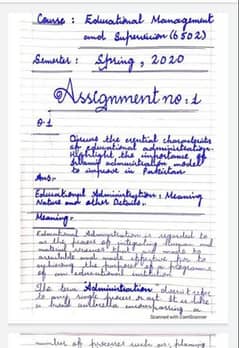 Course : Educational Management
and Supervision (6502)
Semester : Spring, 2020
Assignment no : 1
Q.1
Discuss the essential characteristics
of educational administration.
Highlight the importance of
Islamic administration model
to improve in Pakistan
Ans.-
Educational Administration : Meaning
Nature and other Details.
Meaning.-
Educational Administration is regarded to
as the process of integrating
material resources that are made
available and made effective for
achieving the purposes of a programme
of an educational institution.
The term Administration doesn't refer
to any single process or act. It is like
a broad umbrella encompassing a
Scanned with CamScanner
number of processes such as: planning